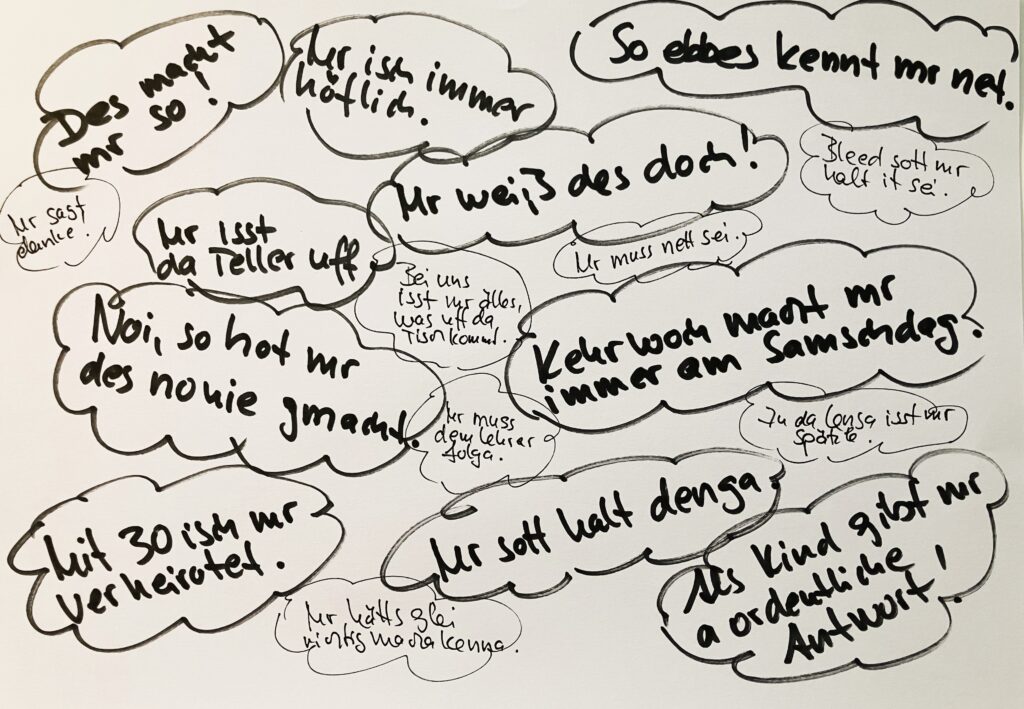 Des macht
mr so!
Mr isch immer
höflich.
So ebbes kennt mr net.
Mr sagt
danke.
Mr isst
da Teller uff
Mr weiß des doch!
Bleed sott mr
halt it sei.
Mr muss nett sei.
Bei uns
isst mr älles,
was uff da
Tisch kommt.
Noi, so hot mr
des no nie gmacht.
Kehrwoch macht mr
immer am Samschdag.
Mr muss
dem Lehrer
folga.
Zu da Lensa isst mr
Spätzle.
Mit 30 isch mr
verheiratet.
Mr sott halt denga.
Als Kind gibst mr
a ordentliche
Antwort!
Mr hätts glei
richtig macha kenna.